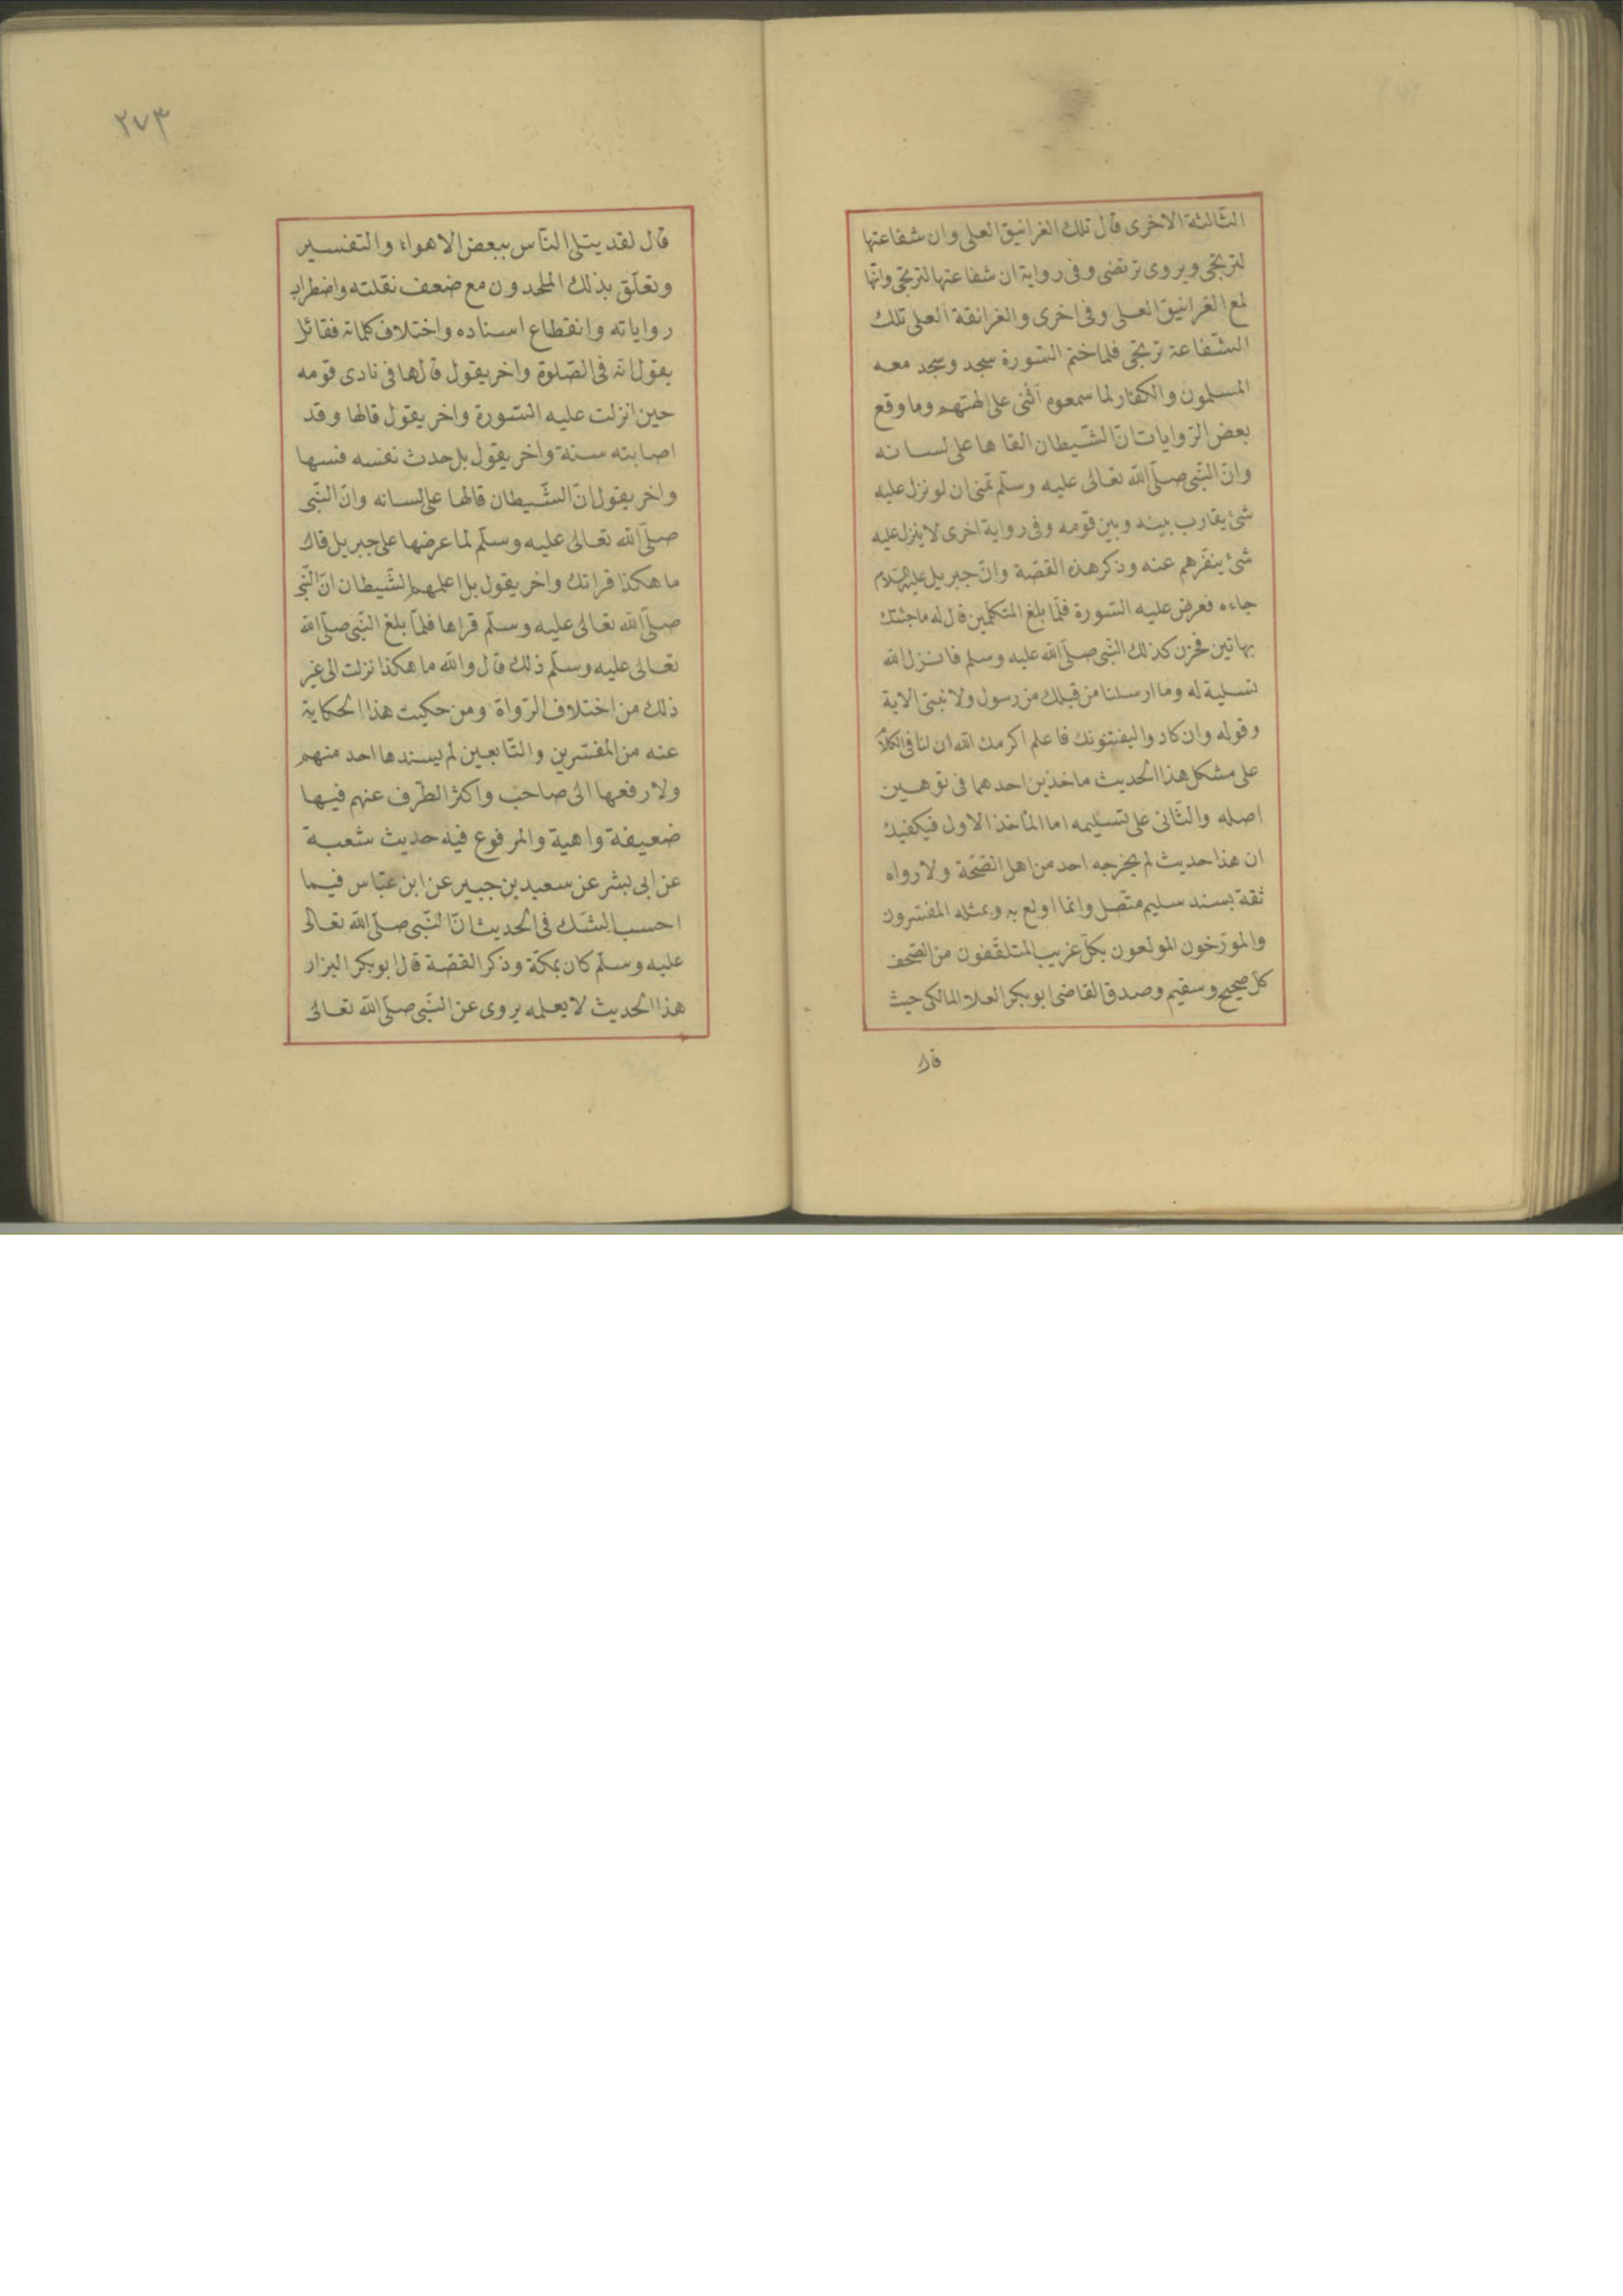 الثّالثة الاخرى قال تلك الغرانيق العلى وان شفاعتها
لترتجى ويروى ترتضى وفى رواية ان شفاعتها لترتجى وانّها
لمع الغرانيق العلى وفى اخرى والغرانقة العلى تلك
الشّفاعة ترتجى فلما ختم السّورة سجد وسجد معه
المسلمون والكفّار لما سمعوه اثنى على الهتهم وما وقع
بعض الرّوايات انّ الشّيطان القاها على لسانه
وانّ النّبى صلّى الله تعالى عليه وسلّم تمنى ان لو نزل عليه
شئ يقارب بينه وبين قومه وفى رواية اخرى لا ينزل عليه
شئ ينفّرهم عنه وذكر هذه القصّة وانّ جبريل عليه السّلام
جاءه فعرض عليه السّورة فلمّا بلغ المتكلّمين قال له ما جئتك
بهاتين فحزن كذلك النّبى صلّى الله عليه وسلم فانزل الله
تسلية له وما ارسلنا من قبلك من رسول ولا نبىّ الاية
وقوله وان كادوا ليفتنونك فاعلم اكرمك الله ان لنا فى الكلام
على مشكل هذا الحديث ماخذين احدهما فى توهين
اصله والثّانى على تسليمه اما المأخذ الاول فيكفيك
ان هذا حديث لم يخرجه احد من اهل الصّحّة ولا رواه
ثقة بسند سليم متّصل وانما اولع به وبمثله المفسّرون
والمورّخون المولعون بكلّ غريب المتلقّفون من الصّحف
كلّ صحيح وسقيم وصدق القاضى ابو بكر العلا المالكى حيث
قال
٢٧٣
قال لقد يتلى النّاس ببعض الاهواء والتفسير
وتعلّق بذلك الملحدون مع ضعف نقلته واضطراب
رواياته وانقطاع اسناده واختلاف كلماته فقائل
يقول انّه فى الصّلوة واخر يقول قالها فى نادى قومه
حين انزلت عليه السّورة واخر يقول قالها وقد
اصابته سنة واخر يقول بل حدث نفسه فسها
واخر يقول انّ الشّيطان قالها على لسانه وانّ النّبى
صلّى الله تعالى عليه وسلّم لما عرضها على جبريل قال
ما هكذا قراتك واخر يقول بل اعلمهم الشّيطان انّ النّبى
صلّى الله تعالى عليه وسلّم قراها فلمّا بلغ النّبى صلّى الله
تعالى عليه وسلّم ذلك قال والله ما هكذا نزلت الى غير
ذلك من اختلاف الرّواة ومن حكيت هذا الحكاية
عنه من المفسّرين والتّابعين لم يسندها احد منهم
ولا رفعها الى صاحب واكثر الطّرف عنهم فيها
ضعيفة واهية والمرفوع فيه حديث شعبة
عن ابى بشر عن سعيد بن جبير عن ابن عبّاس فيما
احسب الشّك فى الحديث انّ النّبى صلّى الله تعالى
عليه وسلّم كان بمكّة وذكر القصّة قال ابو بكر البزار
هذا الحديث لا يعلمه يروى عن النّبى صلّى الله تعالى